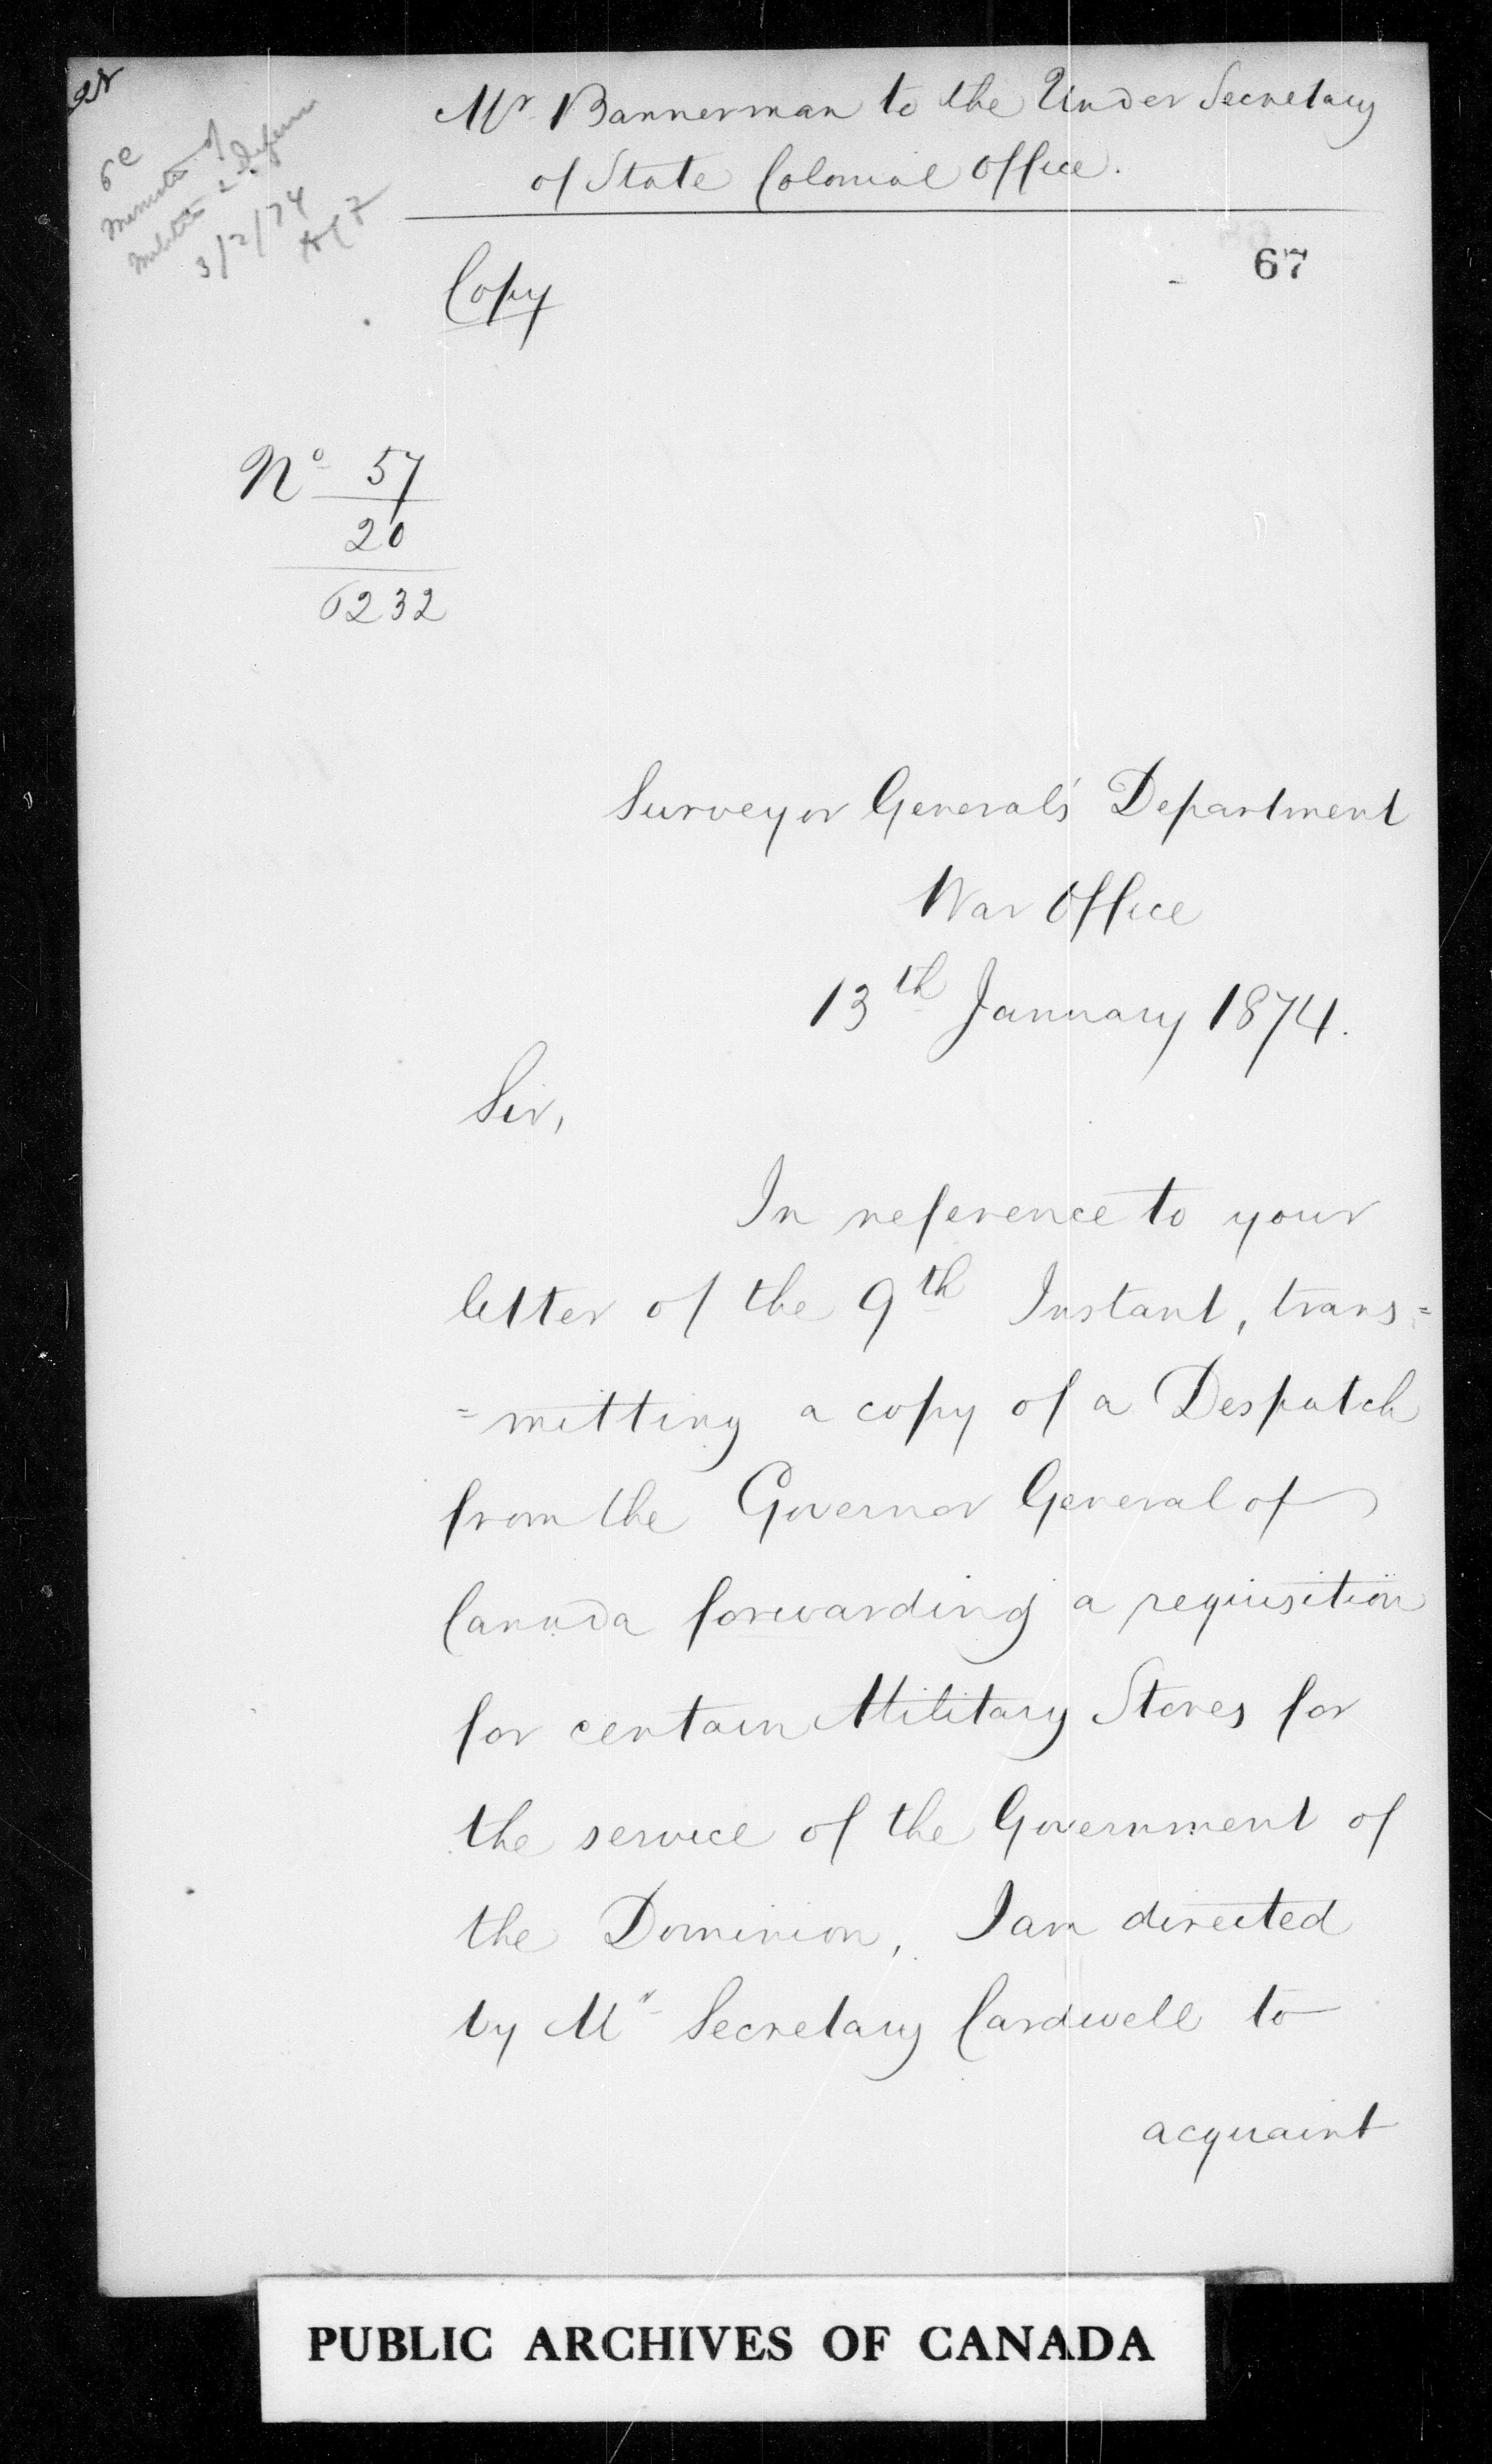 Mr Bannerman to the Under Secretary
of State Colonial Office.
67
Minister of
Militia & Defence
3/2/74
Copy
No 57
20
6232
Surveyor General's Department
War Office
13th January 1874.
Sir,
In reference to your
letter of the 9th Instant, trans=
=mitting a copy of a Despatch
from the Governor General of
Canada forwarding a requisition
for certain Military Stores for
the service of the Government of
the Dominion, I am directed
by Mr Secretary Cardwell to
acquaint
PUBLIC ARCHIVES OF CANADA